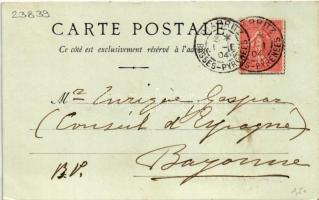 23839
CARTE POSTALE
Ce côté est exclusivement réservé à l'adresse
BIARRITZ
BASSES-PYRÉNÉES
04
Mr Enrique Gaspar
(Consul d'Espagne)
Bayonne
B.P.